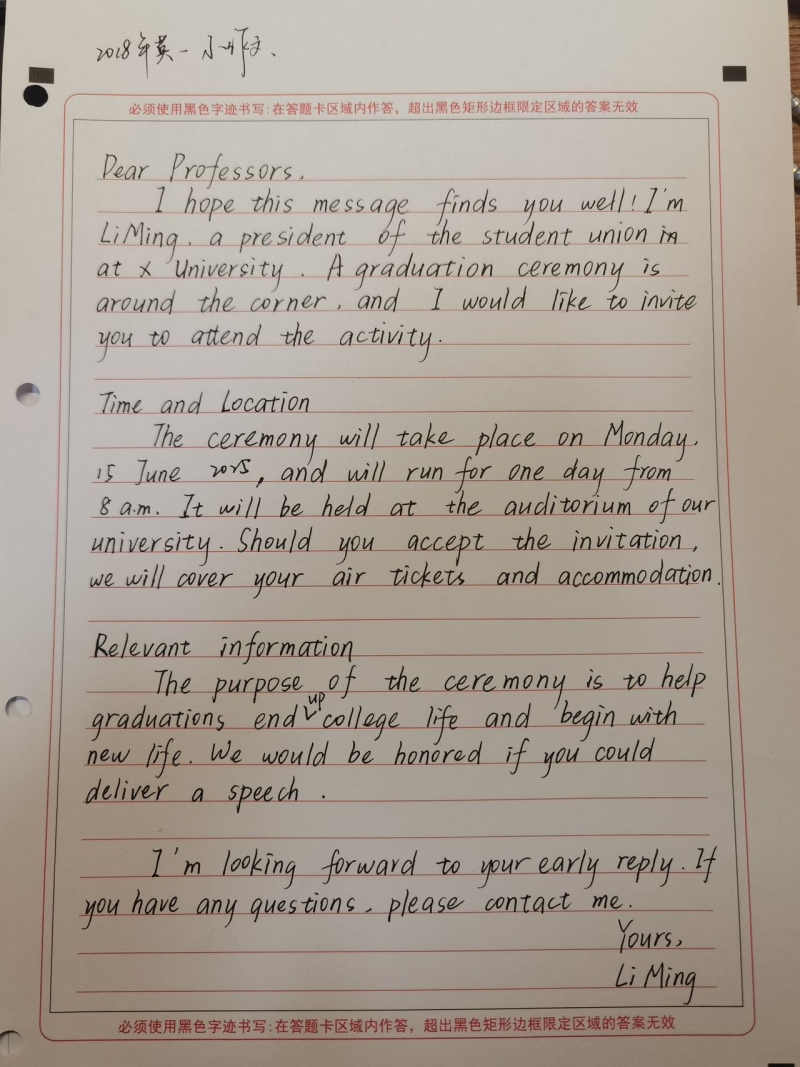 2018年英一 小作文.
必须使用黑色字迹书写:在答题卡区域内作答，超出黑色矩形边框限定区域的答案无效
Dear Professors,
I hope this message finds you well! I'm
Li Ming, a president of the student union in
at X University. A graduation ceremony is
around the corner, and I would like to invite
you to attend the activity.
Time and Location
The ceremony will take place on Monday,
15 June 2025, and will run for one day from
8 a.m. It will be held at the auditorium of our
university. Should you accept the invitation,
we will cover your air tickets and accommodation.
Relevant information
The purpose of the ceremony is to help
graduations end up college life and begin with
new life. We would be honored if you could
deliver a speech.
I'm looking forward to your early reply. If
you have any questions, please contact me.
Yours,
Li Ming
必须使用黑色字迹书写:在答题卡区域内作答，超出黑色矩形边框限定区域的答案无效